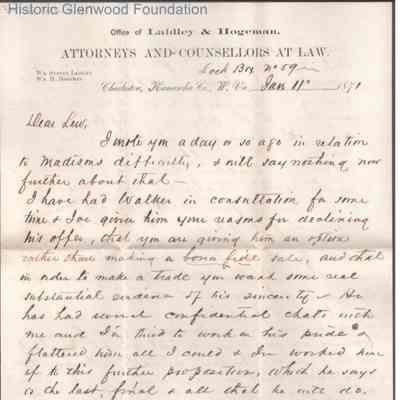 Historic Glenwood Foundation
Office of Laidley & Hogeman,
ATTORNEYS AND COUNSELLORS AT LAW.
Lock Box No 59
Wm. H. Hogeman
Charleston, Kanawha Co., W. Va. Jan 11" 1871
Dear Lew,
I wrote you a day or so ago in relation
to Madisons difficulty, & will say nothing now
further about that —
I have had Walker in consultation for some
time & I've given him your reasons for declining
his offer, that you are giving him an option
rather than making a bona fide sale, and that
in order to make a trade you want some real
substantial evidence of his sincerity & He
has had several confidential chats with
me and I've tried to work on his pride &
flattered him all I could & I've worked him
up to this further proposition, which he says
is the last, final & all that he will do.